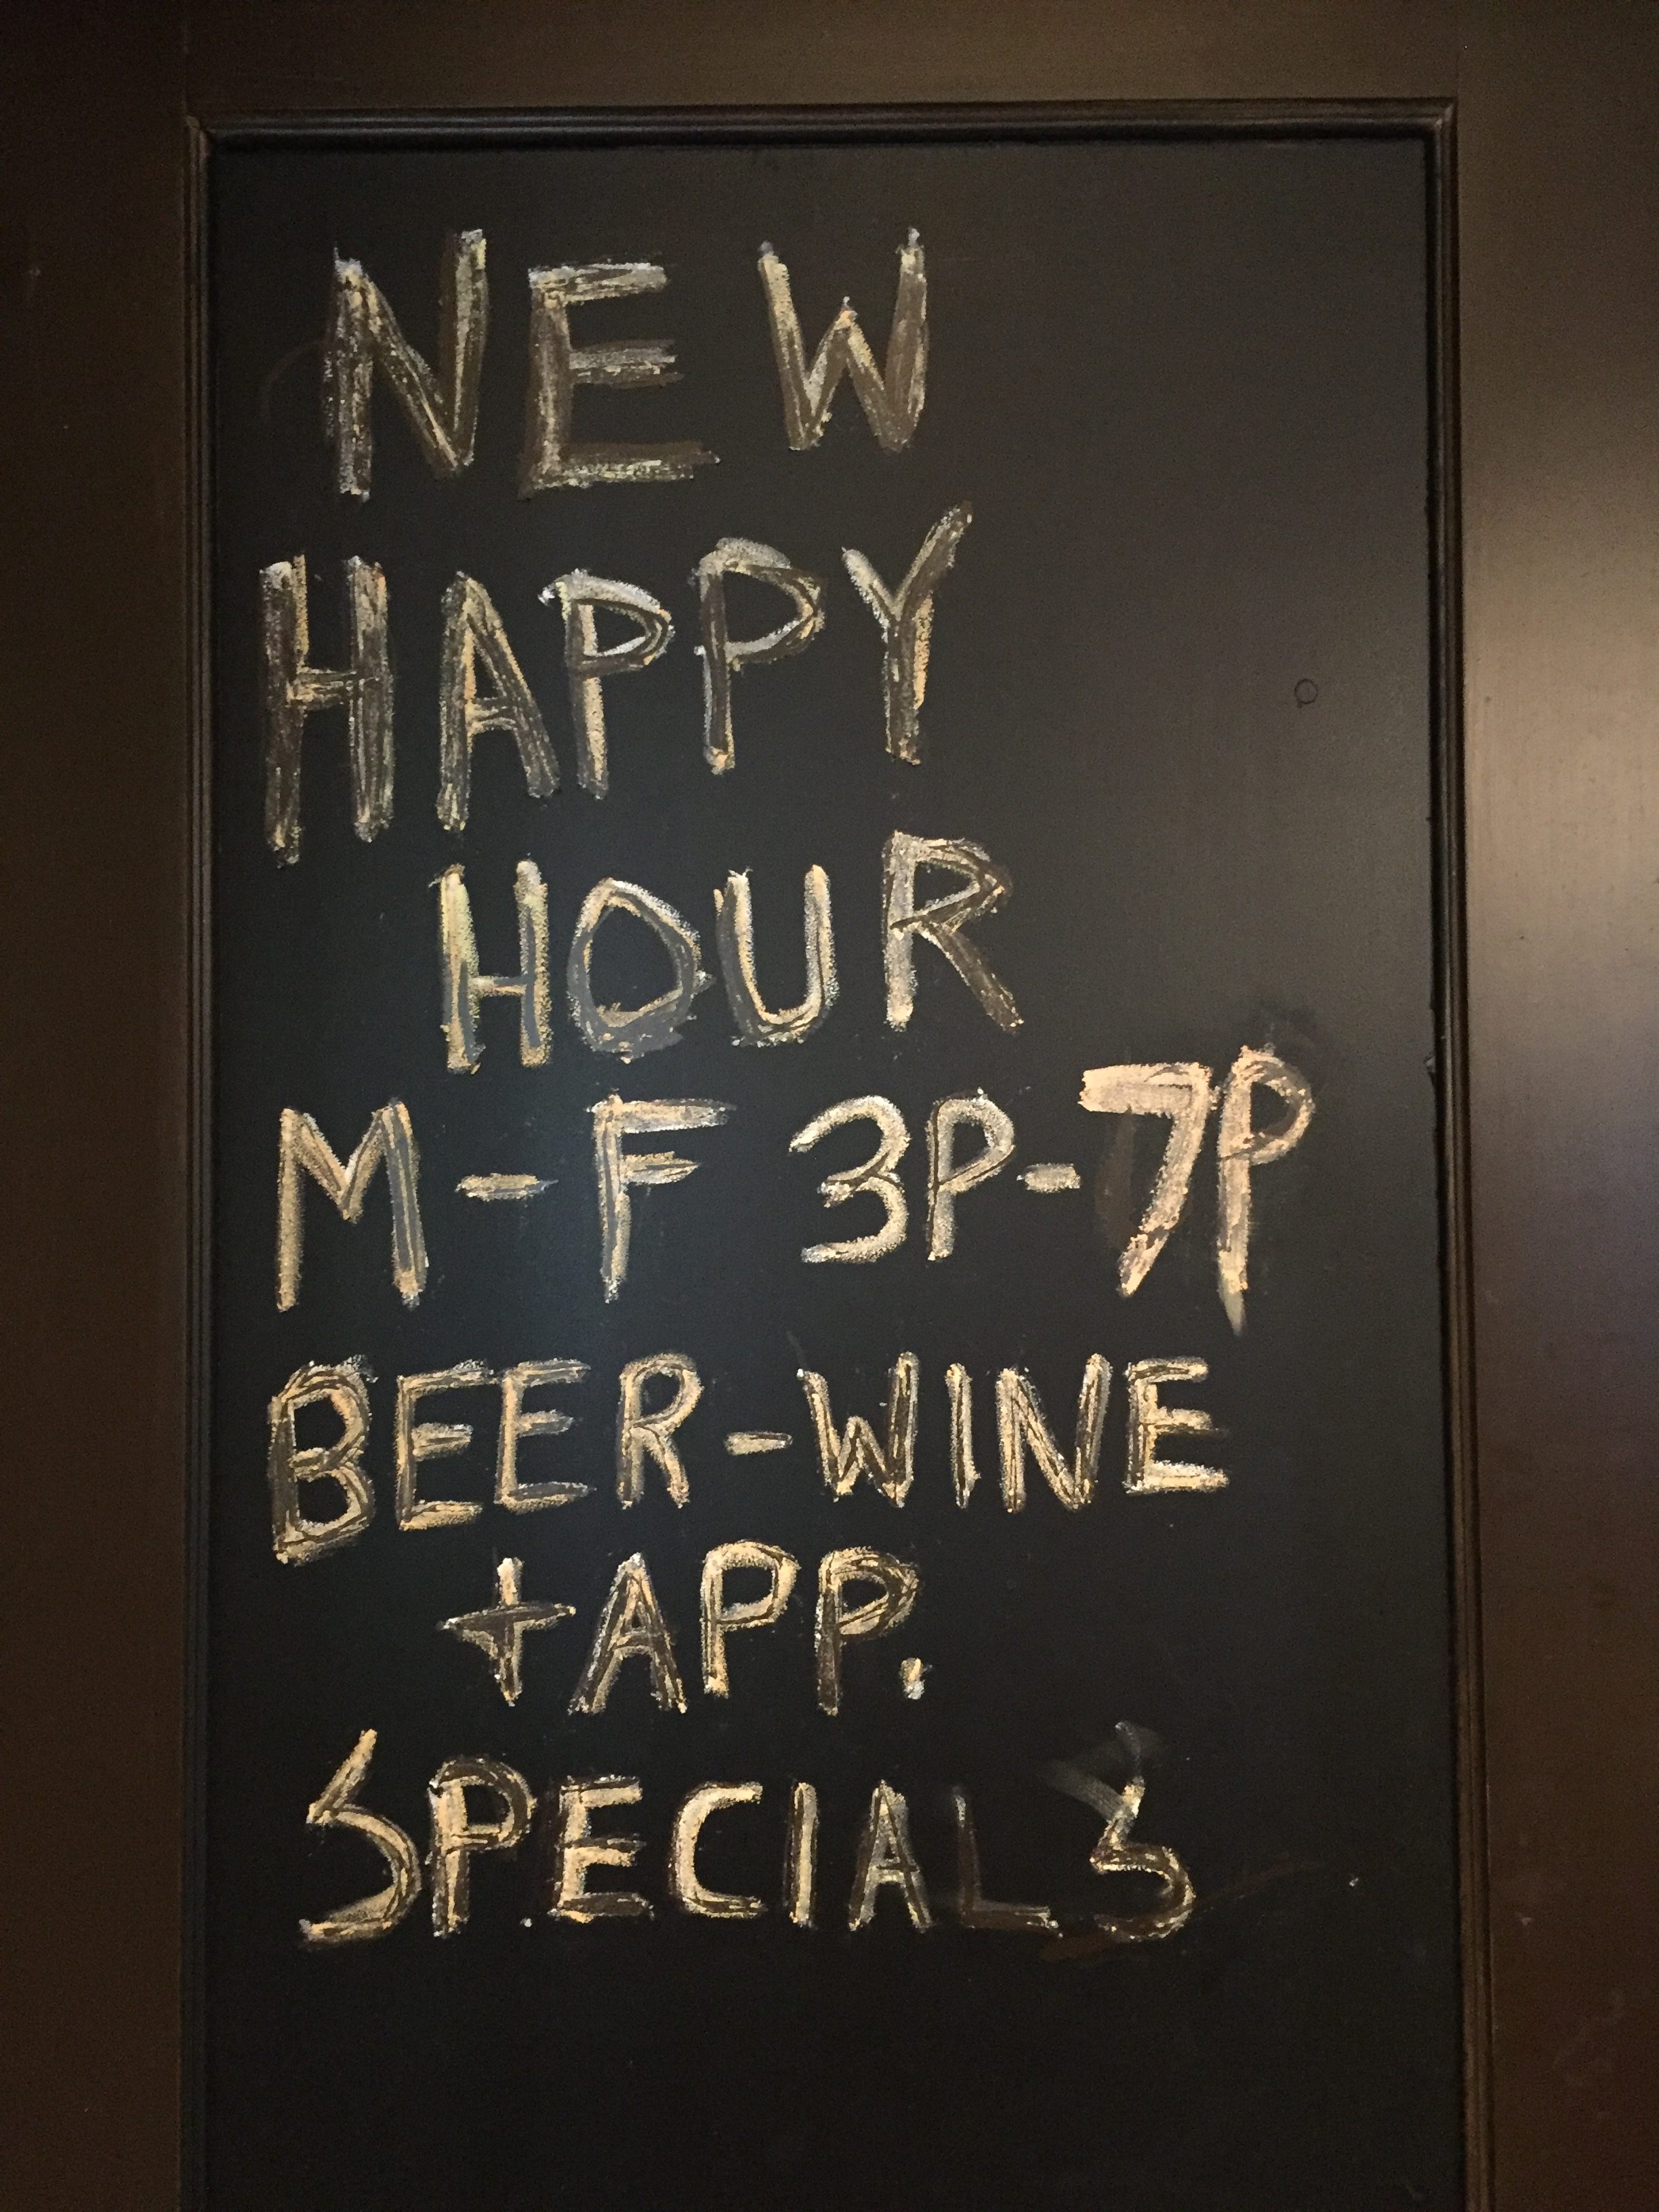 NEW
HAPPY
HOUR
M-F 3P-7P
BEER-WINE
+APP.
SPECIALS